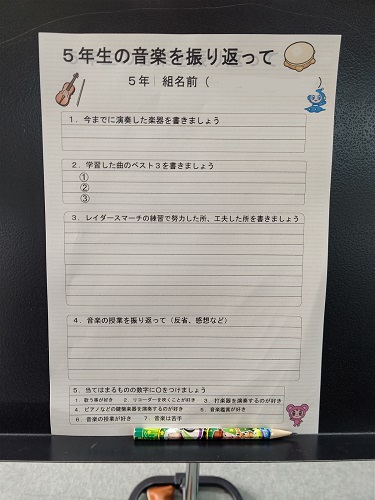 5年生の音楽を振り返って
5年 組名前(
1．今までに演奏した楽器を書きましょう
2．学習した曲のベスト3を書きましょう
①
②
③
3．レイダースマーチの練習で努力した所、工夫した所を書きましょう
4．音楽の授業を振り返って（反省、感想など）
5．当てはまるものの数字に○をつけましょう
1．歌う事が好き 2．リコーダーを吹くことが好き 3．打楽器を演奏するのが好き
4．ピアノなどの鍵盤楽器を演奏するのが好き 5．音楽鑑賞が好き
6．音楽の授業が好き 7．音楽は苦手